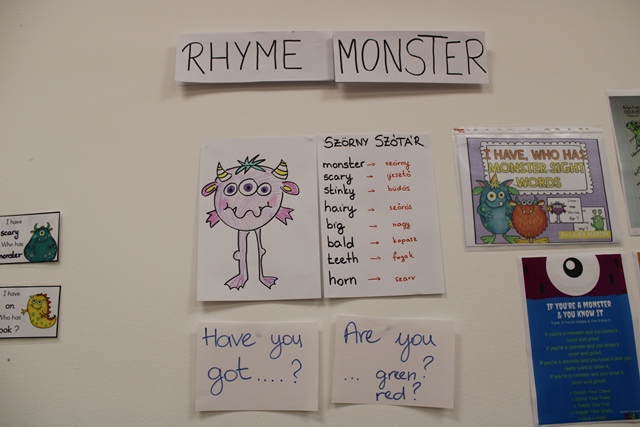 RHYME MONSTER
SZÖRNY SZÓTÁR
monster → szörny
scary → ijesztő
stinky → büdös
hairy → szőrös
big → nagy
bald → kopasz
teeth → fogak
horn → szarv
Have you
got ....?
Are you
... green?
red?
I HAVE, WHO HAS
MONSTER SIGHT
WORDS
IF YOU'RE A MONSTER
& YOU KNOW IT
I have
scary
Who has
monster
I have
on
Who has
look ?